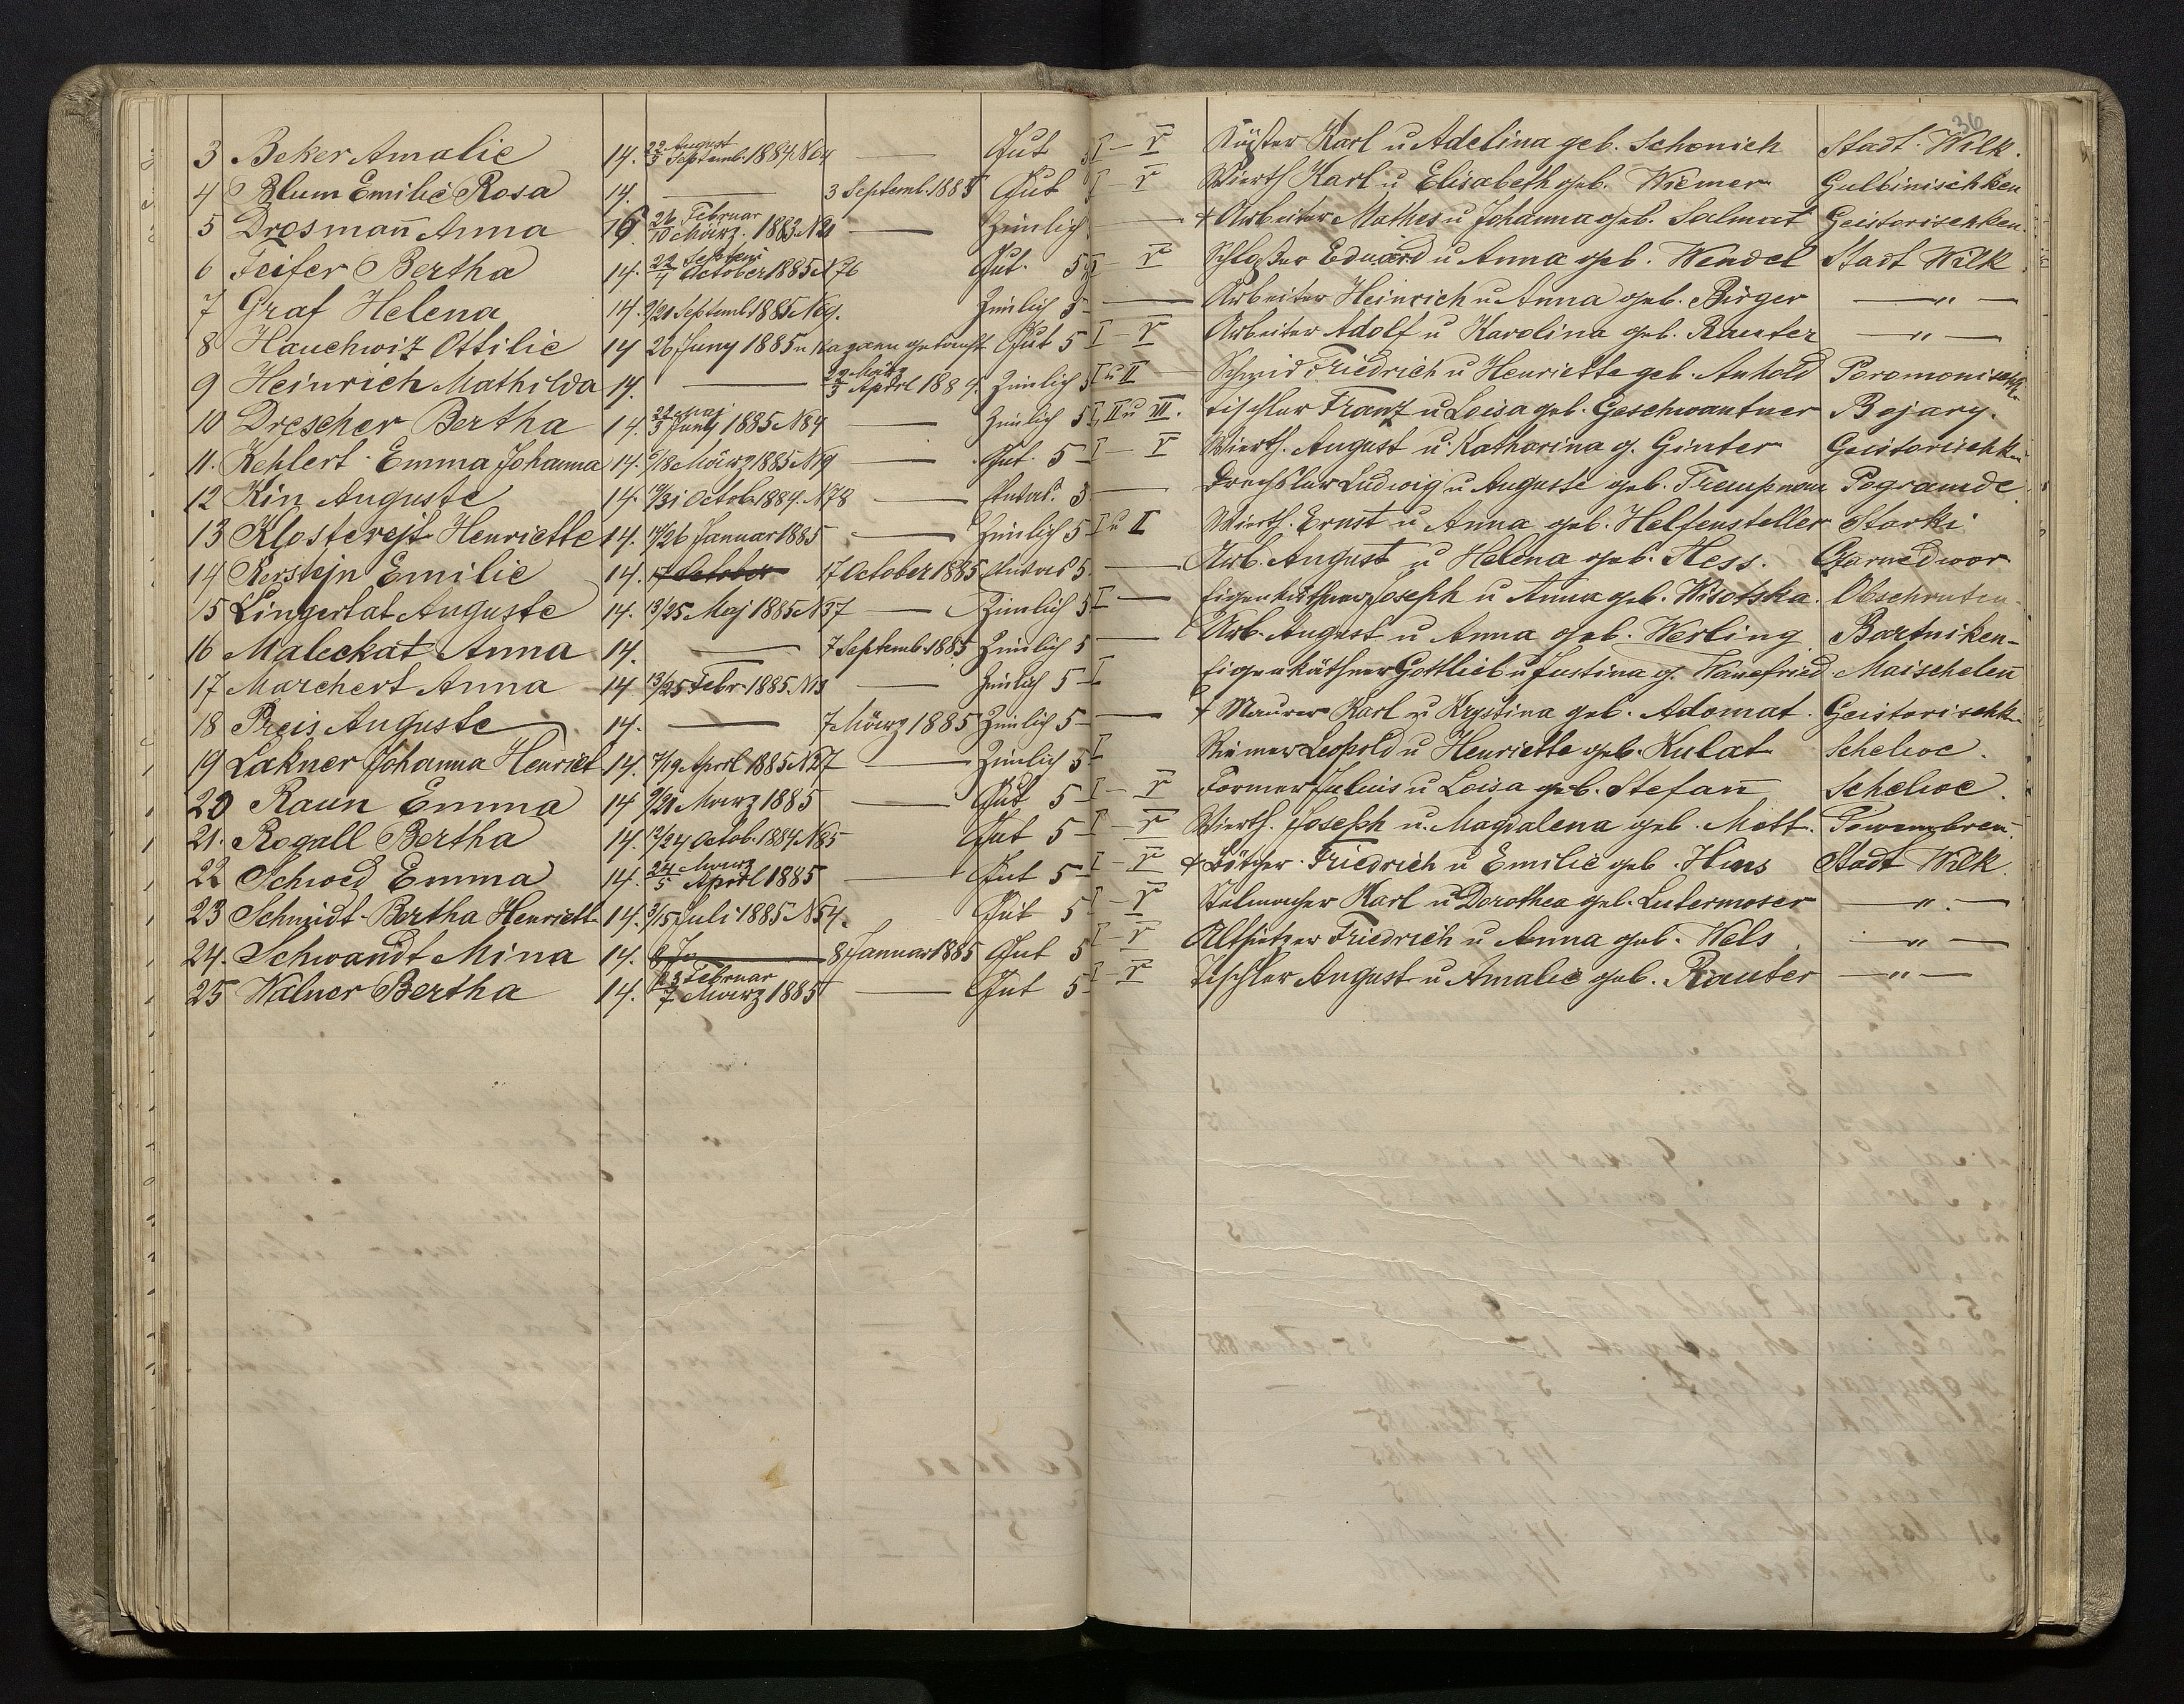 36
3 Beker Amalie 14. 22 August / 3 Septemb. 1884 N64 — Gut 5 I – V Küster Karl u Adelina geb. Schonich Stadt Wilk.
4 Blum Emilie Rosa 14. — 3 Septemb. 1885 Gut 5 I – V Wierth Karl u Elisabeth geb. Wiemer Gulbinischken
5 Drosmann Anna 16. 26 Februar / 10 März. 1883 N21 — Zimlich — + Arbeiter Mathes u Johanna geb. Salmat Geistorischken
6 Feifer Bertha 14. 22 / 4 October 1885 N76 Gut. 5 I – V Schloßer Eduard u Anna geb. Wendel Stadt Wilk
7 Graf Helena 14. 9/21 Septemb 1885 N69. Zimlich 5 — Arbeiter Heinrich u Anna geb. Birger — " —
8 Hauchwiz Ottilie 14 26 Juny 1885 in getauft Gut 5 I – V Arbeiter Adolf u Karolina geb. Rauter — " —
9 Heinrich Mathilda 14. — 22 März / 3 April 1884. Zimlich 5 I u II — Schmid Friedrich u Henriette geb. Anhold
10 Drescher Bertha 14. 22 Maj / 3 Juny 1885 N84 — Zimlich 5 I, II u III. Tischler Franz u Loisa geb. Geschwantner Bojary.
11. Kehlert Emma Johanna 14. 6/18 März 1885 N19 — Gut. 5 I – V Wierth. August u Katharina g. Ginter Geistorischk
12 Kin Auguste 14. 19/31 Octob. 1884. N78 — 3 — Drechsler Ludwig u Auguste geb. Pogramde
13 Klosterejt Henriette 14. 14/26 Januar 1885 — Zimlich 5 I u II Wierth. Ernst u Anna geb. Helfensteller Starki
14 Kerstejn Emilie 14. 17 October 17 October 1885 5 — Arb. August u Helena geb. Hess. Czarnedwor
15 Lingertat Auguste 14. 13/25 Maj 1885 N37 — Zimlich 5 I — Eigenkäthner Joseph u Anna geb. Wisotska. Obschruten
16 Maleckat Anna 14. — 7 Septemb. 1885 Zimlich 5 — Arb. August u Anna geb. Werling Bartniken
17 Marchert Anna 14 13/25 Febr. 1885. N13 — Zimlich 5 I Eigenkäthner Gottlieb u Justina g. Wannefried Maischelen
18 Preis Auguste 14. — 7 März 1885 Zimlich 5 — + Maurer Karl u Krystina geb. Adomat. Geistorischk
19 Lakner Johanna Henriet 14. 7/19 April 1885 N27 — Zimlich 5 I Riemer Leopold u Henriette geb. Kulat Schelwe.
20 Raun Emma 14 9/21 Maerz 1885 — Gut 5 I – V Former Juluis u Loisa geb. Stefann Schelwe.
21. Rogall Bertha 14. 12/24 Octob. 1884. N85 Gut 5 I – V Wierth. Joseph u. Magdalena geb. Mott.
22 Schwed Emma 14. 24 Maerz / 5 April 1885 — Gut 5 I – V + Bötger Friedrich u Emilie geb. Hins Stadt Wilk.
23 Schmidt Bertha Henriett 14. 3/15 Juli 1885 N54. Gut 5 I – V Stelmacher Karl u Dorothea geb. Lutermoser — " —
24. Schwandt Mina 14. 8 Ja 8 Januar 1885 Gut 5 I – V Altsitzer Friedrich u Anna geb. Wels — " —
25 Walner Bertha 14. 23 Februar / 7 Maerz 1885 — Gut 5 I – V Tischler August u Amalie geb. Rauter — " —